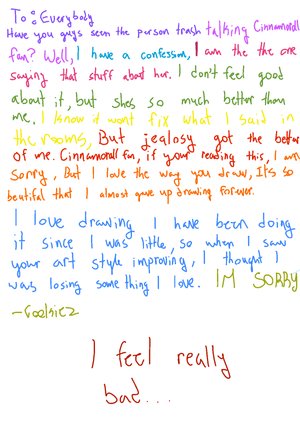 To: Everybody
Have you guys seen the person trash talking Cinnamoroll
fan? Well, I have a confession, I am the the one
saying that stuff about her. I don't feel good
about it, but shes so much better than
me. I know it wont fix what I said in
the rooms, But jealosy got the better
of me. Cinnamoroll fan, if your reading this, I am
sorry, But I love the way you draw, It's so
beutiful that I almost gave up drawing forever.
I love drawing I have been doing
it since I was little, so when I saw
your art style improving, I thought I
was losing something I love. IM SORRY
I feel really
bad...